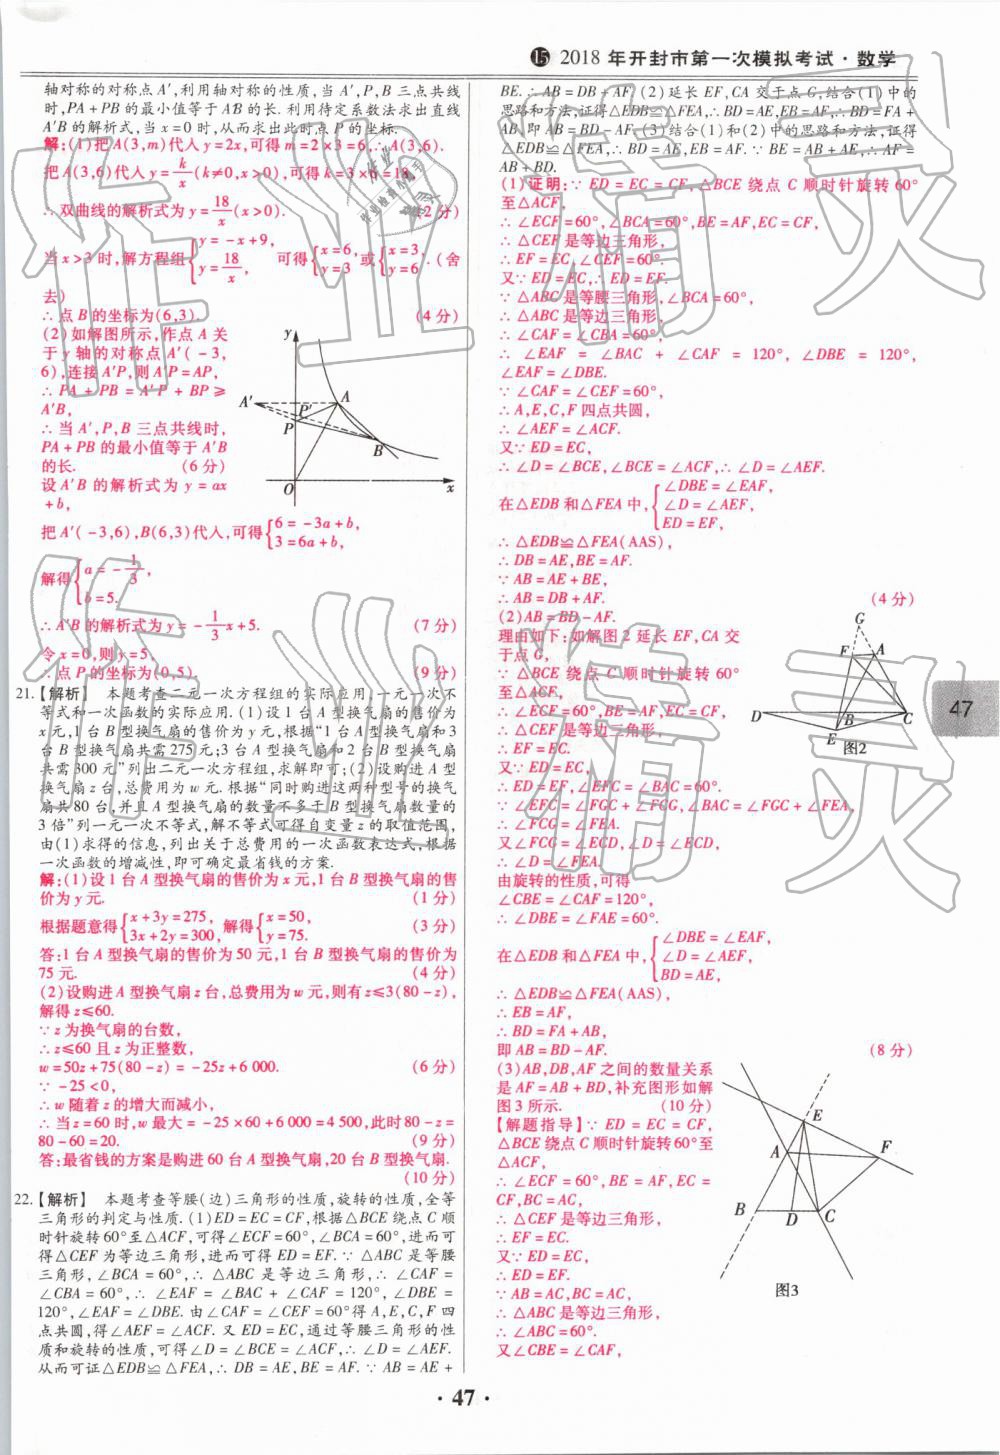 ⑮ 2018 年开封市第一次模拟考试·数学
轴对称的对称点 A′,利用轴对称的性质,当 A′,P,B 三点共线
时,PA+PB 的最小值等于 A′B 的长.利用待定系数法求出直线
A′B 的解析式,当 x=0 时,从而求出此时点 P 的坐标.
解:(1)把 A(3,m)代入 y=2x,可得 m=2×3=6,∴A(3,6).
把 A(3,6)代入 y=k/x(k≠0,x>0),可得 k=3×6=18,
∴双曲线的解析式为 y=18/x(x>0). (2 分)
当 x>3 时,解方程组{y=-x+9, y=18/x, 可得{x=6, y=3 或{x=3, y=6.(舍
去)
∴点 B 的坐标为(6,3). (4 分)
(2)如解图所示,作点 A 关
于 y 轴的对称点 A′(-3,
6),连接 A′P,则 A′P=AP,
∴PA+PB=A′P+BP≥
A′B,
∴当 A′,P,B 三点共线时,
PA+PB 的最小值等于 A′B
的长. (6 分)
设 A′B 的解析式为 y=ax
+b,
把 A′(-3,6),B(6,3)代入,可得{6=-3a+b, 3=6a+b,
解得{a=-1/3, b=5.
∴A′B 的解析式为 y=-1/3x+5. (7 分)
令 x=0,则 y=5,
∴点 P 的坐标为(0,5). (9 分)
y
A′
P′
A
P
B
O
x
21.【解析】 本题考查二元一次方程组的实际应用,一元一次不
等式和一次函数的实际应用.(1)设 1 台 A 型换气扇的售价为
x 元,1 台 B 型换气扇的售价为 y 元,根据“1 台 A 型换气扇和 3
台 B 型换气扇共需 275 元;3 台 A 型换气扇和 2 台 B 型换气扇
共需 300 元”列出二元一次方程组,求解即可;(2)设购进 A 型
换气扇 z 台,总费用为 w 元.根据“同时购进这两种型号的换气
扇共 80 台,并且 A 型换气扇的数量不多于 B 型换气扇数量的
3 倍”列一元一次不等式,解不等式可得自变量 z 的取值范围,
由(1)求得的信息,列出关于总费用的一次函数表达式,根据
一次函数的增减性,即可确定最省钱的方案.
解:(1)设 1 台 A 型换气扇的售价为 x 元,1 台 B 型换气扇的售
价为 y 元. (1 分)
根据题意得{x+3y=275, 3x+2y=300, 解得{x=50, y=75. (3 分)
答:1 台 A 型换气扇的售价为 50 元,1 台 B 型换气扇的售价为
75 元. (4 分)
(2)设购进 A 型换气扇 z 台,总费用为 w 元,则有 z≤3(80-z),
解得 z≤60.
∵z 为换气扇的台数,
∴z≤60 且 z 为正整数,
w=50z+75(80-z)=-25z+6 000. (6 分)
∵-25<0,
∴w 随着 z 的增大而减小,
∴当 z=60 时,w 最大=-25×60+6 000=4 500,此时 80-z=
80-60=20. (9 分)
答:最省钱的方案是购进 60 台 A 型换气扇,20 台 B 型换气扇.
(10 分)
22.【解析】 本题考查等腰(边)三角形的性质,旋转的性质,全等
三角形的判定与性质.(1)ED=EC=CF,根据△BCE 绕点 C 顺
时针旋转 60°至△ACF,可得∠ECF=60°,∠BCA=60°,进而可
得△CEF 为等边三角形,进而可得 ED=EF.∵△ABC 是等腰
三角形,∠BCA=60°,∴△ABC 是等边三角形,∴∠CAF=
∠CBA=60°,∴∠EAF=∠BAC+∠CAF=120°,∠DBE=
120°,∠EAF=∠DBE.由∠CAF=∠CEF=60°得 A,E,C,F 四
点共圆,得∠AEF=∠ACF.又 ED=EC,通过等腰三角形的性
质和旋转的性质,可得∠D=∠BCE=∠ACF,∴∠D=∠AEF.
从而可证△EDB≌△FEA,∴DB=AE,BE=AF.∵AB=AE+
BE.∴AB=DB+AF.(2)延长 EF,CA 交于点 G,结合(1)中的
思路和方法,证得△EDB≌△FEA,∴BD=AE,EB=AF,∴BD=FA+
AB,即 AB=BD-AF.(3)结合(1)和(2)中的思路和方法,证得
△EDB≌△FEA,∴BD=AE,EB=AF.∵BE=AB+AE,∴AF=
AB+BD.
(1)证明:∵ED=EC=CF,△BCE 绕点 C 顺时针旋转 60°
至△ACF,
∴∠ECF=60°,∠BCA=60°,BE=AF,EC=CF,
∴△CEF 是等边三角形,
∴EF=EC,∠CEF=60°.
又∵ED=EC,∴ED=EF.
∵△ABC 是等腰三角形,∠BCA=60°,
∴△ABC 是等边三角形,
∴∠CAF=∠CBA=60°,
∴∠EAF=∠BAC+∠CAF=120°,∠DBE=120°,
∠EAF=∠DBE.
∵∠CAF=∠CEF=60°,
∴A,E,C,F 四点共圆,
∴∠AEF=∠ACF.
又∵ED=EC,
∴∠D=∠BCE,∠BCE=∠ACF,∴∠D=∠AEF.
在△EDB 和△FEA 中,{∠DBE=∠EAF, ∠D=∠AEF, ED=EF,
∴△EDB≌△FEA(AAS),
∴DB=AE,BE=AF.
∵AB=AE+BE,
∴AB=DB+AF. (4 分)
(2)AB=BD-AF.
理由如下:如解图 2 延长 EF,CA 交
于点 G,
∵△BCE 绕点 C 顺时针旋转 60°
至△ACF,
∴∠ECF=60°,BE=AF,EC=CF,
∴△CEF 是等边三角形,
∴EF=EC.
又∵ED=EC,
∴ED=EF,∠EFC=∠BAC=60°.
∵∠EFC=∠FGC+∠FCG,∠BAC=∠FGC+∠FEA,
∴∠FCG=∠FEA.
又∠FCG=∠ECD,∠D=∠ECD,
∴∠D=∠FEA.
由旋转的性质,可得
∠CBE=∠CAF=120°,
∴∠DBE=∠FAE=60°.
在△EDB 和△FEA 中,{∠DBE=∠EAF, ∠D=∠AEF, BD=AE,
∴△EDB≌△FEA(AAS),
∴EB=AF,
∴BD=FA+AB,
即 AB=BD-AF. (8 分)
G
F
A
D
B
C
E
图2
(3)AB,DB,AF 之间的数量关系
是 AF=AB+BD,补充图形如解
图 3 所示. (10 分)
【解题指导】∵ED=EC=CF,
△BCE 绕点 C 顺时针旋转 60°至
△ACF,
∴∠ECF=60°,BE=AF,EC=
CF,BC=AC,
∴△CEF 是等边三角形,
∴EF=EC.
又∵ED=EC,
∴ED=EF.
∵AB=AC,BC=AC,
∴△ABC 是等边三角形,
∴∠ABC=60°.
又∠CBE=∠CAF,
E
A
F
B
D
C
图3
47
· 47 ·
作业精灵
作业精灵